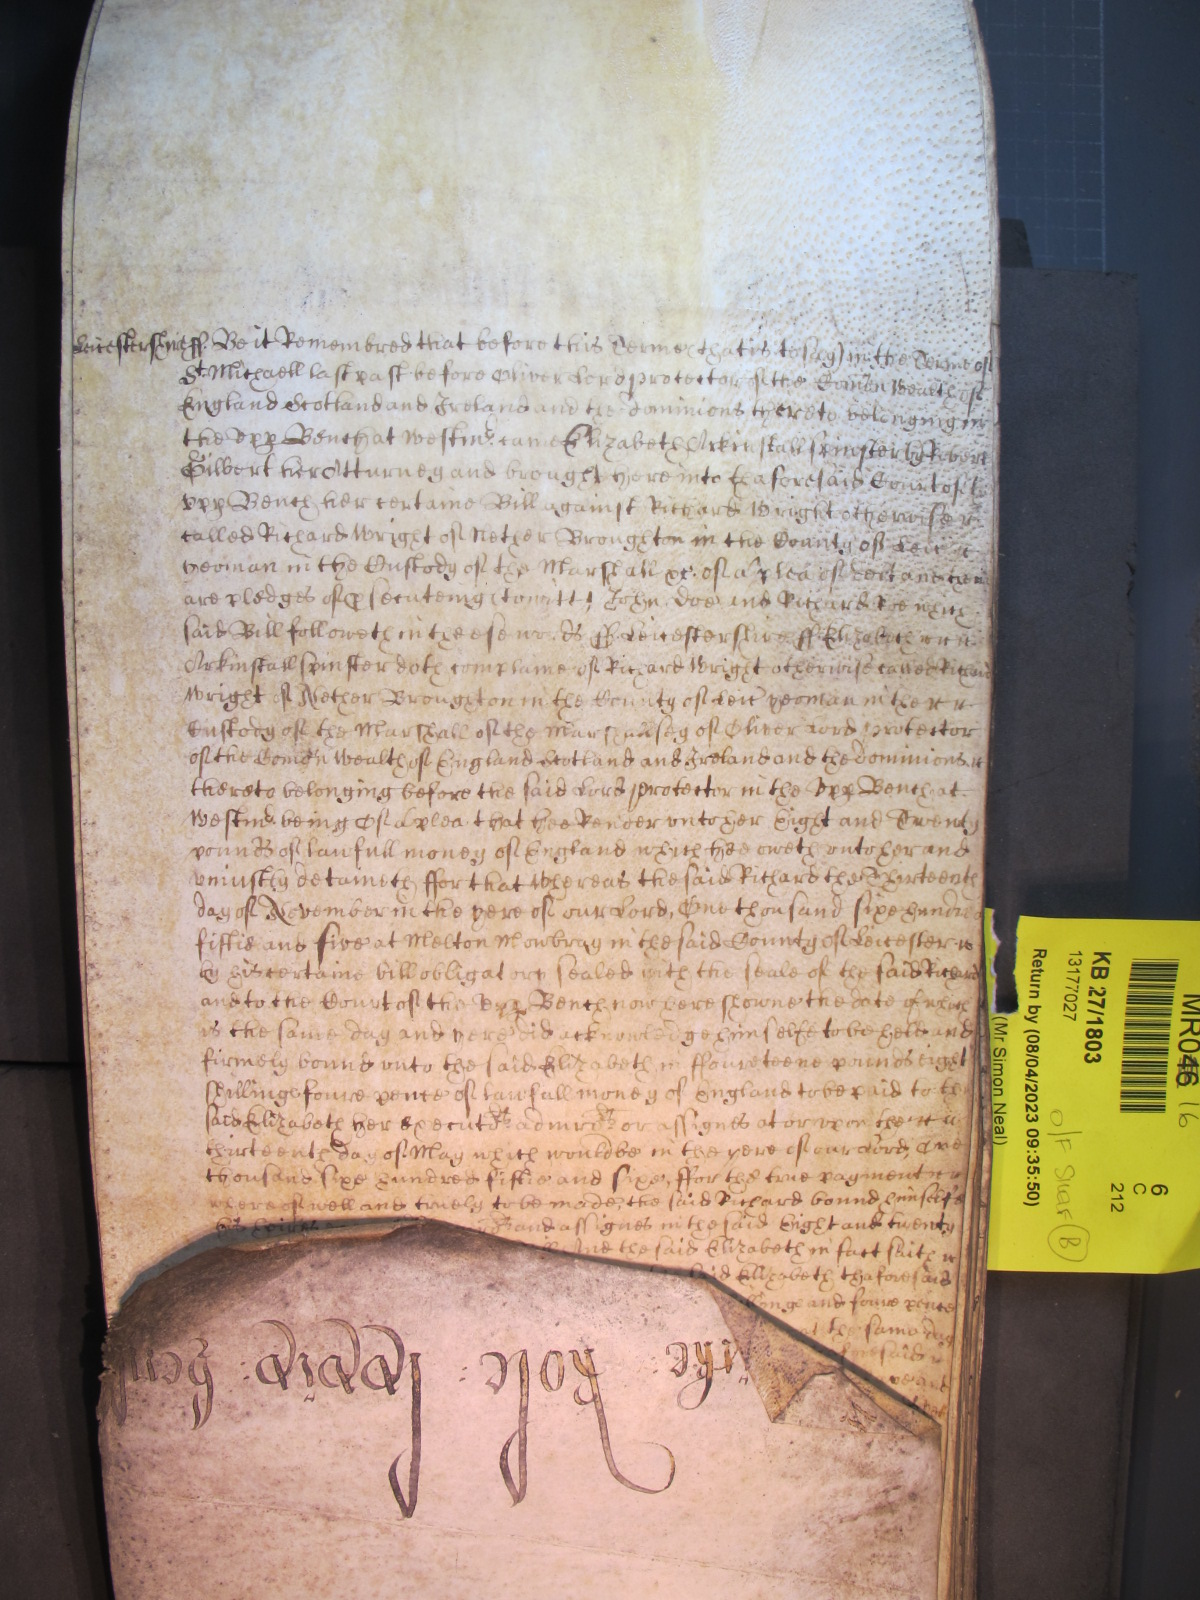 Leicestershire ss Be it Remembred that before this Terme (that is to say) in the Terme of
St. Michaell last past before Oliver Lord protector of the Comon Wealth of
England Scotland and Ireland and the dominions thereto belonging in
the vpp Bench at Westmr. came Elizabeth Arkinstall spinster by Robert
Gilbert her Atturney and brought here into thaforesaid Court of the
vpp Bench her certaine Bill against Richard Wright otherwise
called Richard Wright of Nether Broughton in the County of Leic
yeoman in the Custody of the Marshall &c. of a plea of debt and there
are pledges of psecuteing (towitt) John Doe and Richard Roe which
said Bill followeth in these words ss Leicestershire ss Elizabeth
Arkinstall spinster doth complaine of Richard Wright otherwise called Richard
Wright of Nether Broughton in the County of Leic yeoman in the
Custody of the Marshall of the Marshalsey of Oliver Lord protector
of the Comon Wealth of England Scotland and Ireland and the dominions
thereto belonging before the said Lord protector in the vpp Bench at
Westmr. being Of a plea that hee Render vnto her Eight and Twenty
pounds of lawfull money of England which hee oweth vnto her and
vniustly detaineth ffor that Whereas the said Richard the Thirteenth
day of November in the yere of our Lord, One thousand sixe hundred
fiftie and five at Melton Mowbray in the said County of Leicester
by his certaine bill obligatory sealed with the seale of the said Richard
and to the Court of the vpp Bench now here showne the date of which
is the same day and yere did acknowledge himselfe to be held and
firmely bound vnto the said Elizabeth in ffoureteene pounds eight
shillings foure pence of lawfull money of England to be paid to the
said Elizabeth her executrs admrs or assignes at or vpon the
thirteenth day of May which would be in the yere of our Lord, One
thousand sixe hundred fiftie and sixe, ffor the true payment
whereof well and truely to be made, the said Richard bound himselfe
his heires and assignes in the said Eight and twenty
And the said Elizabeth in fact saith
said Elizabeth thaforesaid
and foure pence
at the same day
aforesaid
MR046
16
KB 27/1803
13177027
Return by (08/04/2023 09:35:50)
(Mr Simon Neal)
6
C
212
O/F Shelf (B)